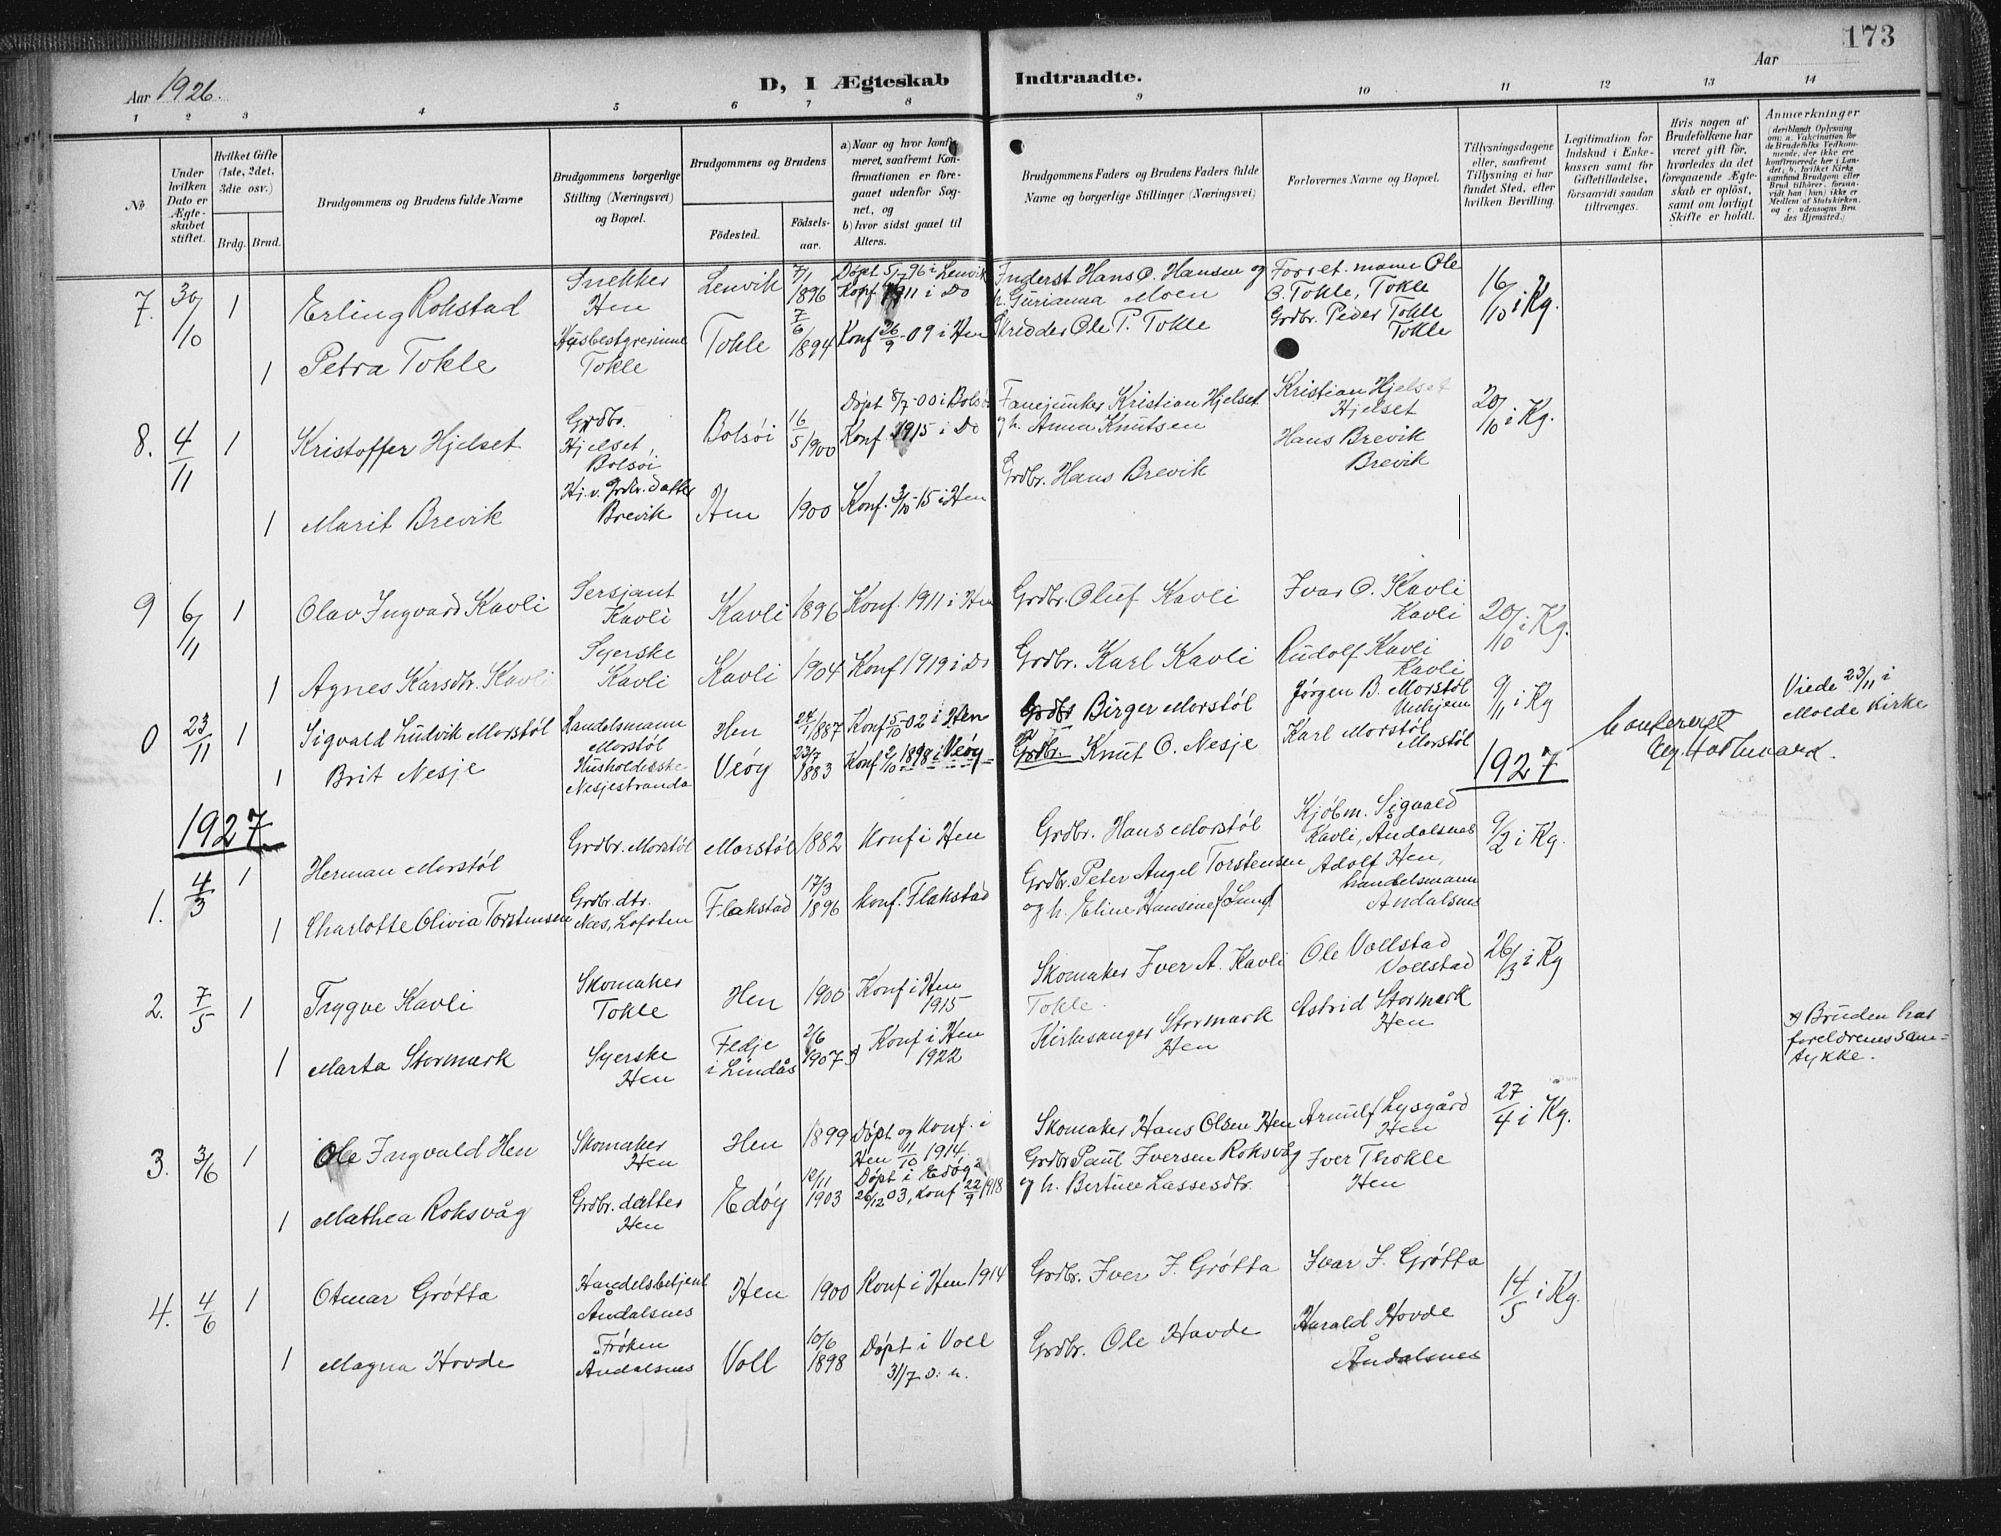 173
Aar 1926.
D, I Ægteskab Indtraadte.
Aar
1 2 3 4 5 6 7 8 9 10 11 12 13 14
№
Under hvilken Dato er Ægteskabet stiftet.
Hvilket Gifte (1ste, 2det, 3die osv.)
Brdg. Brud.
Brudgommens og Brudens fulde Navne
Brudgommens borgerlige Stilling (Næringsvei) og Bopæl.
Brudgommens og Brudens
Födested. Födselsaar.
a) Naar og hvor konfirmeret, saafremt Konfirmationen er foregaaet udenfor Sognet, og
b) hvor sidst gaaet til Alters.
Brudgommens Faders og Brudens Faders fulde Navne og borgerlige Stillinger (Næringsvei)
Forlovernes Navne og Bopæl.
Tillysningsdagene eller, saafremt Tillysning ei har fundet Sted, efter hvilken Bevilling.
Legitimation for Indskud i Enkekassen samt for Giftetilladelse, forsaavidt saadan tiltrænges.
Hvis nogen af Brudefolkene har været gift för, hvorledes da det foregaaende Ægteskab er oplöst, samt om lovligt Skifte er holdt.
Anmærkninger
(deriblandt Oplysning om: a. Vakcination for de Brudefolks Vedkommende, der ikke ere konfirmerede her i Landet; b. hvilket Kirkesamfund Brudgom eller Brud tilhörer, forsaavidt han (hun) ikke er Medlem af Statskirken, og c. udensogns Brudes Hjemsted.)
7. 30/10 1 Erling Rokstad Snekker Hen Lenvik 7/1 1896 Døpt 5/7 96 i Lenvik Konf 1911 i Do Inderst Hans O. Hansen og h. Gurianna Moen Forret.mann Ole O. Tokle, Tokle 16/10 i Kg.
1 Petra Tokle Husbestyrerinne Tokle Tokle 7/6 1894 Konf 26/9-09 i Hen Skredder Ole P. Tokle Grdbr. Peder Tokle Tokle
8. 4/11 1 Kristoffer Hjelset Grdbr. Hjelset, Bolsøi Bolsøi 16/5 1900 Døpt 8/7-00 i Bolsø Konf. 1915 i Do Fanejunker Kristian Hjelset og h. Anna Knutsen Kristian Hjelset Hjelset 20/10 i Kg.
1 Marit Brevik Hj.v. Grdbr.datter Brevik Hen 1900 Konf. 3/10-15 i Hen Grdbr. Hans Brevik Hans Brevik Brevik
9 6/11 1 Olav Ingvard Kavli Sersjant Kavli Kavli 1896 Konf. 1911 i Hen Grdbr. Oluf Kavli Ivar O. Kavli Kavli 20/10 i Kg.
1 Agnes Karsdtr. Kavli Syerske Kavli Kavli 1904 Konf 1919 i Do Grdbr. Karl Kavli Rudolf Kavli Kavli
0 23/11 1 Sigvald Ludvik Morstøl Handelsmann Morstøl Hen 1887 Konf 5/10-02 i Hen Grdbr Birger Morstøl Jørgen B. Morstøl Unhjem 9/11 i Kg Viede 23/11 i Molde Kirke
1 Brit Nesje Husholderske Nesjestranda Veøy 23/7 1883 Konf 2/10 1898 i Veøy Grdbr. Knut O. Nesje Karl Morstøl Morstøl
1927 1927
1. 4/3 1 Herman Morstøl Grdbr. Morstøl Morstøl 1882 Konf i Hen Grdbr. Hans Morstøl Kjøbm. Sigvald Kavli, Åndalsnes 9/2 i Kg.
1 Charlotte Olivia Torstensen Grdbr.dtr. Næs, Lofoten Flakstad 17/3 1896 Konf. Flakstad Grdbr. Peter Angel Torstensen og h. Eline Hansine Lund Adolf Hen, handelsmann Åndalsnes
2. 7/5 1 Trygve Kavli Skomaker Tokle Hen 1900 Konf i Hen 1915 Skomaker Iver A. Kavli Tokle Ole Vollstad Vollstad 26/3 i Kg
1 Marta Stormark Syerske Hen Fedje i Lindås 2/6 1907 Konf i Hen 1922 Kirkesanger Stormark Hen Astrid Stormark Hen Bruden har foreldrenes samtykke.
3. 3/6 1 Ole Ingvald Hen Skomaker Hen Hen 1899 Døpt og Konf. i Hen 11/10 1914 Skomaker Hans Olsen Hen Arnulf Lysgård Hen 27/4 i Kg.
1 Mathea Roksvåg Grdbr. datter Hen Edøy 12/11 1903 Døpt i Edøy 26/12 03, Konf 22/9 1918 Grdbr Paul Iversen Roksvåg og h. Bertine Lassesdtr. Iver Thokle Hen
4. 4/6 1 Otmar Grøtta Handelsbetjent Åndalsnes Hen 1900 Konf i Hen 1914 Grdbr. Iver J. Grøtta Ivar J. Grøtta 14/5 i Kg.
1 Magna Hovde Frøken Åndalsnes Voll 10/6 1898 Døpt i Voll 31/7 s. å. Grdbr. Ole Hovde Harald Hovde Åndalsnes